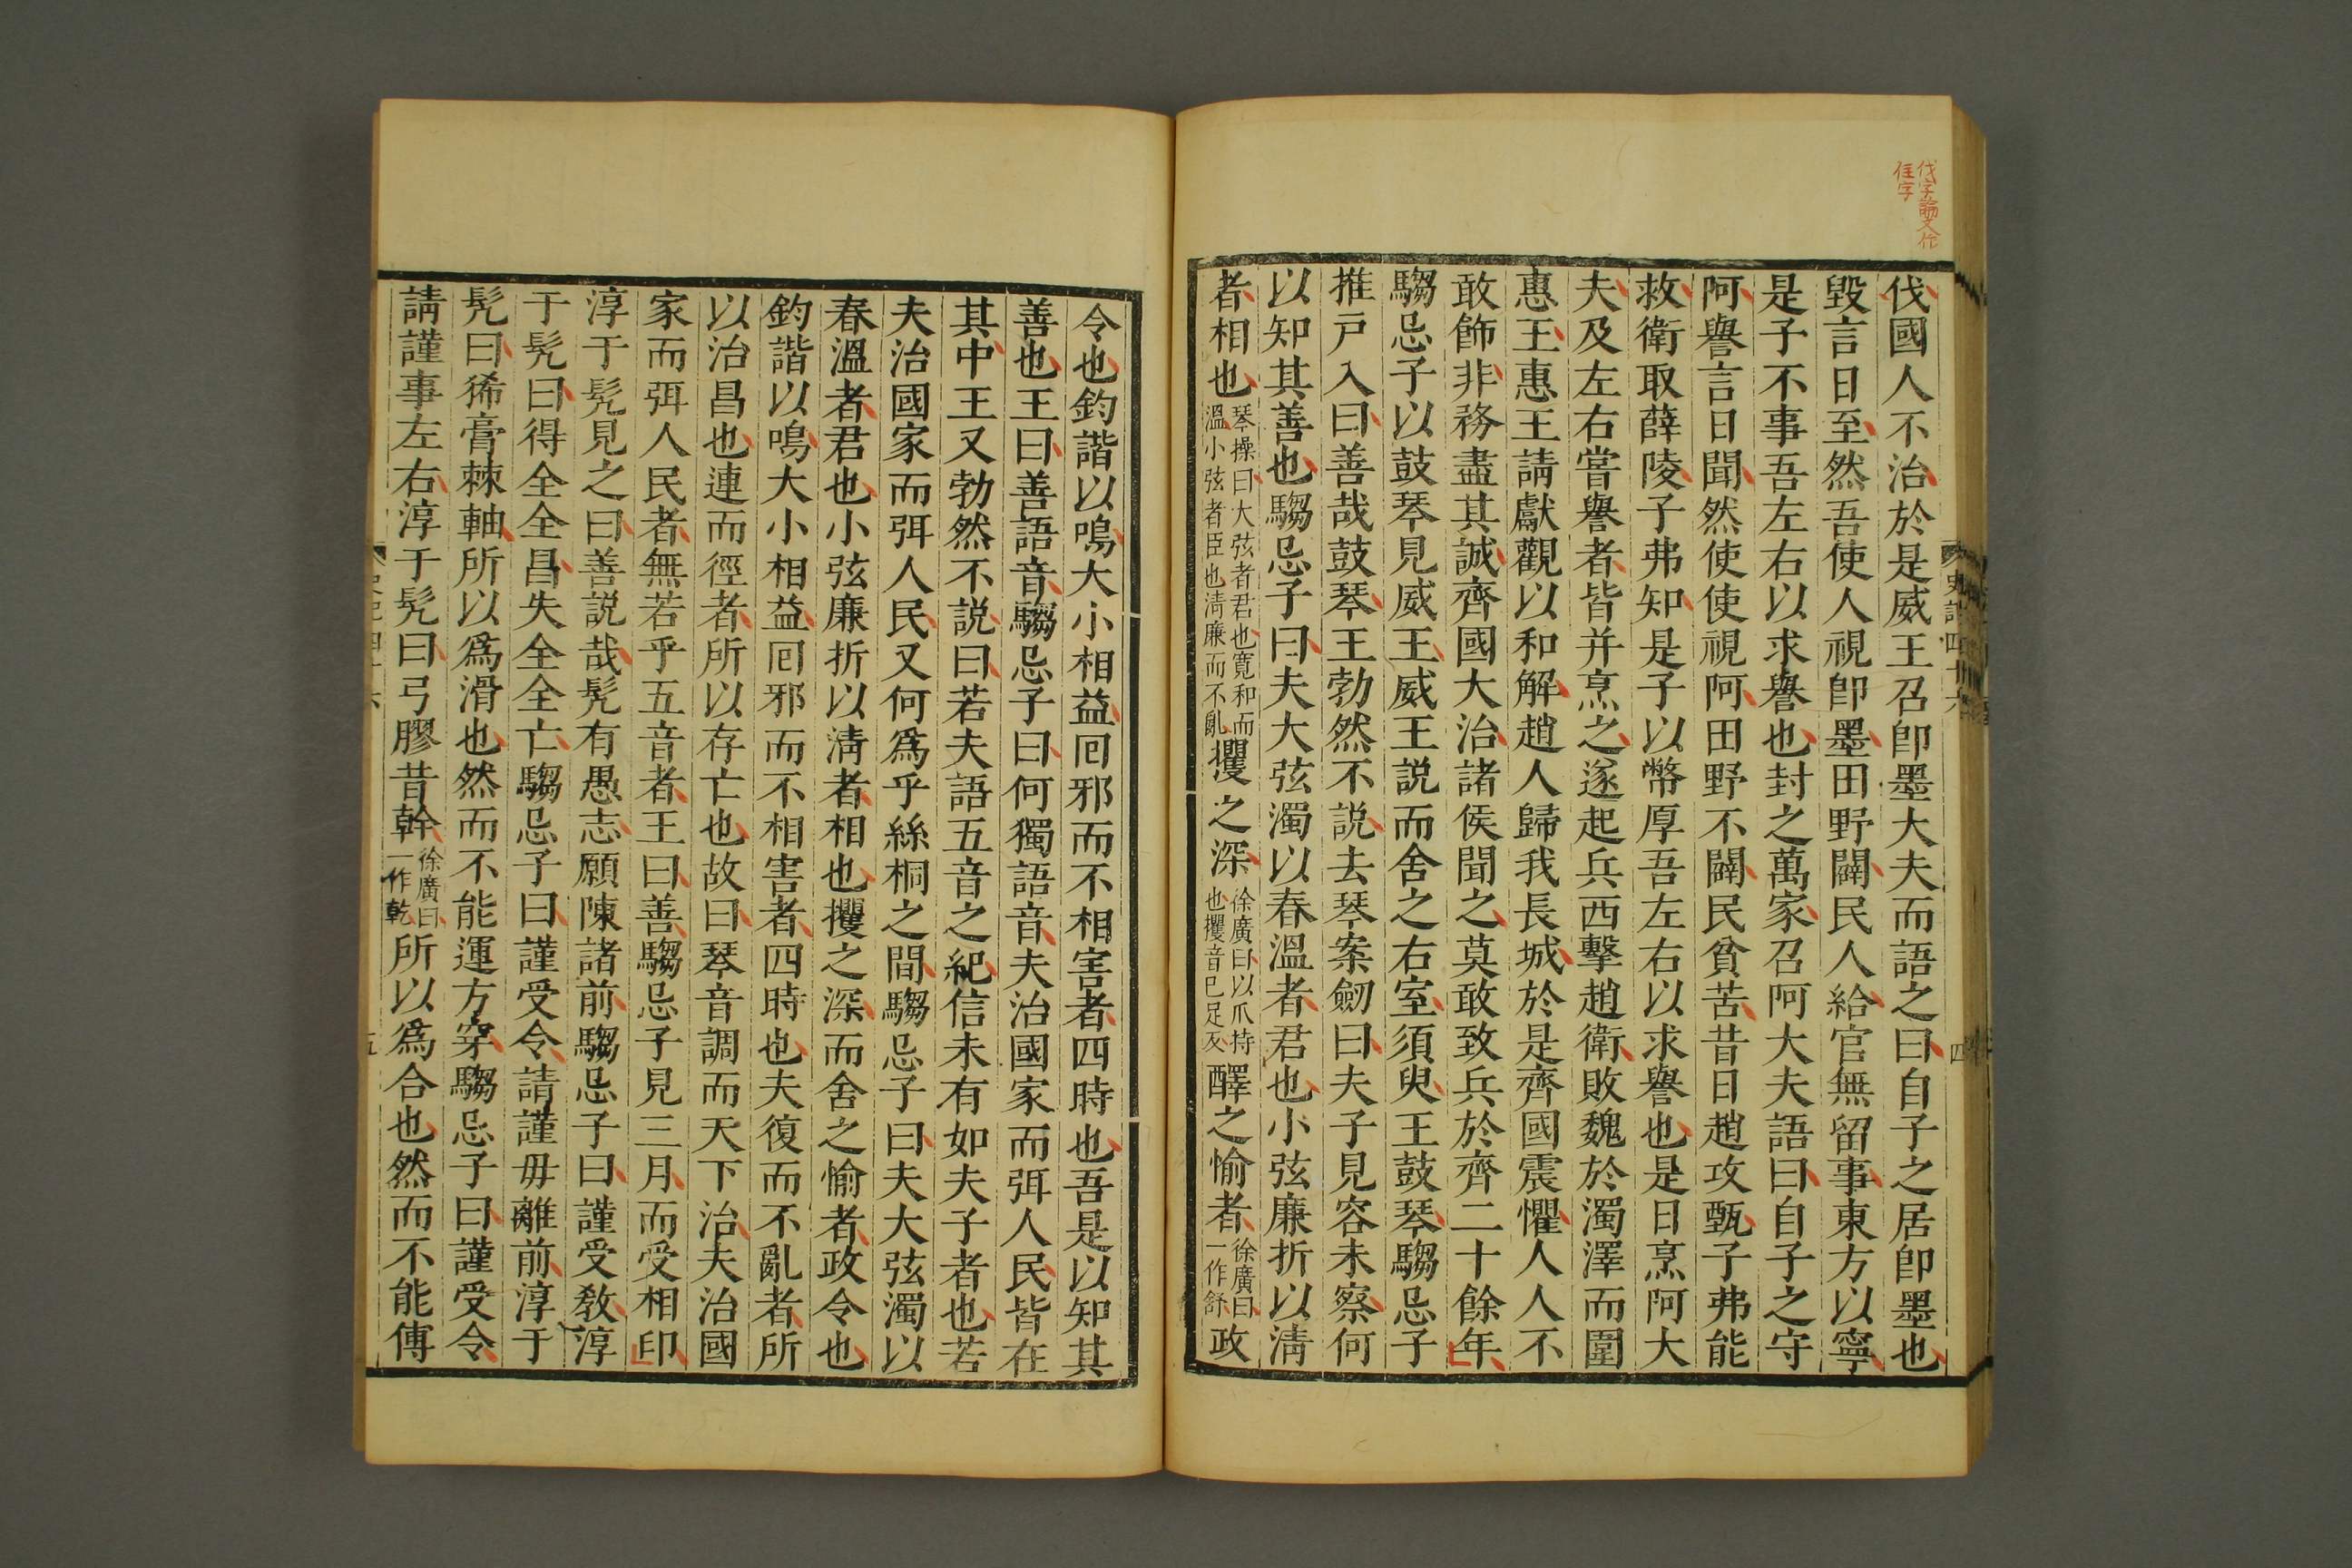 伐字論文作
任字
史記四十六
四
伐國人不治於是威王召卽墨大夫而語之曰自子之居卽墨也
毀言日至然吾使人視卽墨田野闢民人給官無留事東方以寧
是子不事吾左右以求譽也封之萬家召阿大夫語曰自子之守
阿譽言日聞然使使視阿田野不闢民貧苦昔日趙攻甄子弗能
救衛取薛陵子弗知是子以幣厚吾左右以求譽也是日烹阿大
夫及左右嘗譽者皆并烹之遂起兵西擊趙衛敗魏於濁澤而圍
惠王惠王請獻觀以和解趙人歸我長城於是齊國震懼人人不
敢飾非務盡其誠齊國大治諸侯聞之莫敢致兵於齊二十餘年
騶忌子以鼓琴見威王威王說而舍之右室須臾王鼓琴騶忌子
推戸入曰善哉鼓琴王勃然不說去琴案劒曰夫子見容未察何
以知其善也騶忌子曰夫大弦濁以春溫者君也小弦廉折以淸
者相也琴操曰大弦者君也寬和而溫小弦者臣也淸廉而不亂攫之深徐廣曰以爪持也攫音已足反醳之愉者徐廣曰一作舒政
令也鈞諧以鳴大小相益回邪而不相害者四時也吾是以知其
善也王曰善語音騶忌子曰何獨語音夫治國家而弭人民皆在
其中王又勃然不說曰若夫語五音之紀信未有如夫子者也若
夫治國家而弭人民又何爲乎絲桐之間騶忌子曰夫大弦濁以
春溫者君也小弦廉折以淸者相也攫之深而舍之愉者政令也
鈞諧以鳴大小相益回邪而不相害者四時也夫復而不亂者所
以治昌也連而徑者所以存亡也故曰琴音調而天下治夫治國
家而弭人民者無若乎五音者王曰善騶忌子見三月而受相印
淳于髡見之曰善說哉髡有愚志願陳諸前騶忌子曰謹受敎淳
于髡曰得全全昌失全全亡騶忌子曰謹受令請謹毋離前淳于
髡曰狶膏棘軸所以爲滑也然而不能運方穿騶忌子曰謹受令
請謹事左右淳于髡曰弓膠昔幹徐廣曰一作乾所以爲合也然而不能傅
五